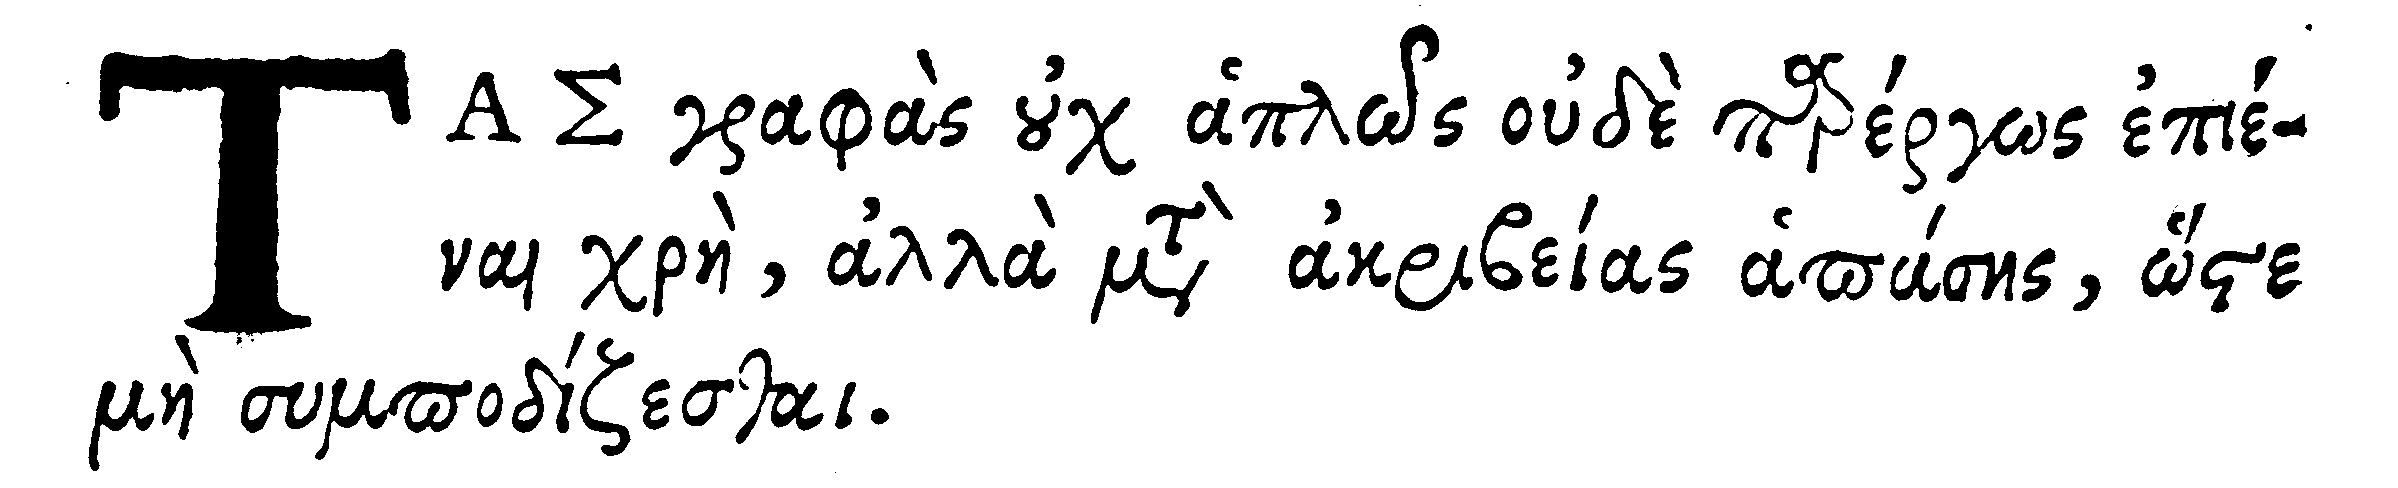 ΤΑΣ γραφὰς οὐχ ἁπλῶς οὐδὲ παρέργως ἐπιέ-
ναι χρὴ, ἀλλὰ μετὰ ἀκριβείας ἁπάσης, ὥστε
μὴ συμποδίζεσθαι.